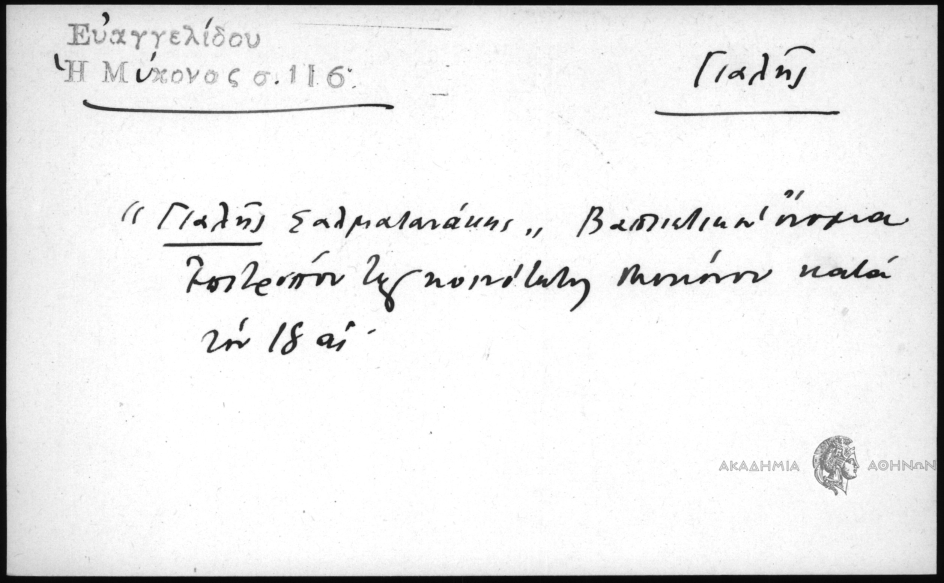 Εὐαγγελίδου
Ἡ Μύκονος σ. 116.
Γιαλῆς
“Γιαλῆς Σαλματανάκης„ Βαπτιστικὸν ὄνομα
Ἐπιτρόπου τῆς κοινότητος Μυκόνου κατὰ
τὸν 18 αἰ
ΑΚΑΔΗΜΙΑ ΑΘΗΝΩΝ